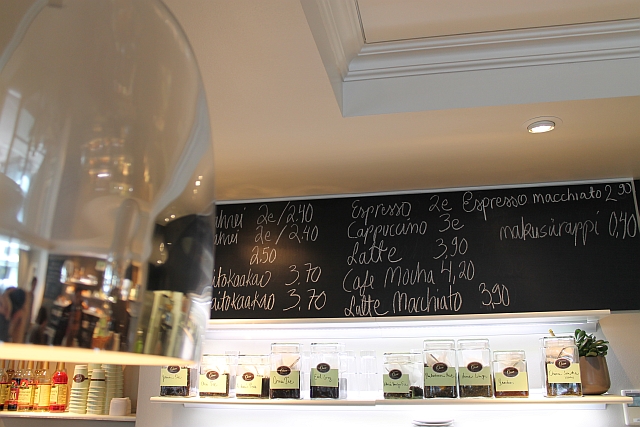 2e/2.40
2e/2.40
2.50
itokaakao 3,70
aitokaakao 3,70
Espresso 2e
Cappuccino 3e
Latte 3,90
Cafe Mocha 4,20
Latte Macchiato 3,90
Espresso macchiato 2.90
makusiirappi 0,40